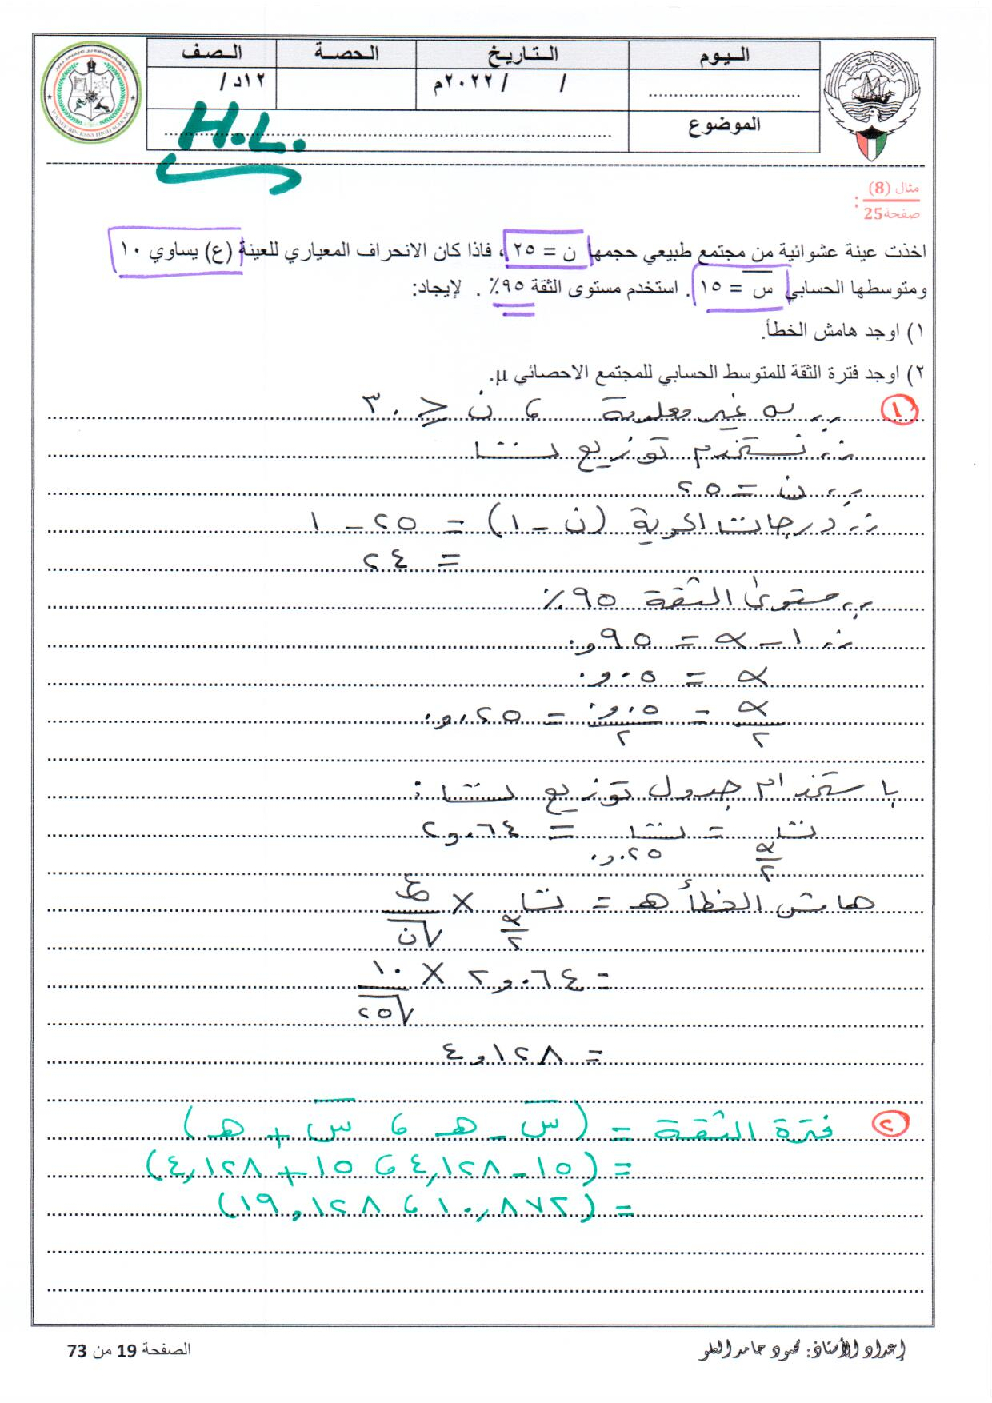 اليوم التاريخ الحصة الصف
/ / ٢٠٢٢م ١٢د/
الموضوع
H.L.
مثال (8)
صفحة 25 :
اخذت عينة عشوائية من مجتمع طبيعي حجمها ن = ٢٥ ، فاذا كان الانحراف المعياري للعينة (ع) يساوي ١٠
ومتوسطها الحسابي س̄ = ١٥ . استخدم مستوى الثقة ٩٥٪ . لإيجاد:
١) اوجد هامش الخطأ.
٢) اوجد فترة الثقة للمتوسط الحسابي للمجتمع الاحصائي μ.
① ∵ σ غير معلومة ، ن ≤ ٣٠
∴ نستخدم توزيع ت
∵ ن = ٢٥
∴ درجات الحرية (ن - ١) = ٢٥ - ١
= ٢٤
∵ مستوى الثقة ٩٥٪
∴ ١ - α = ٩٥و٠
α = ٠٥و٠
α/٢ = ٠٥و٠/٢ = ٠٢٥و٠
باستخدام جدول توزيع ت :
ت α/٢ = ت ٠٢٥و٠ = ٠٦٤و٢
هامش الخطأ هـ = ت α/٢ × ع/√ن
= ٠٦٤و٢ × ١٠/√٢٥
= ١٢٨و٤
② فترة الثقة = (س̄ - هـ ، س̄ + هـ)
= (١٥ - ٤,١٢٨ ، ١٥ + ٤,١٢٨)
= (١٠,٨٧٢ ، ١٩,١٢٨)
إعداد الأستاذ: محمود حامد الحلو
الصفحة 19 من 73